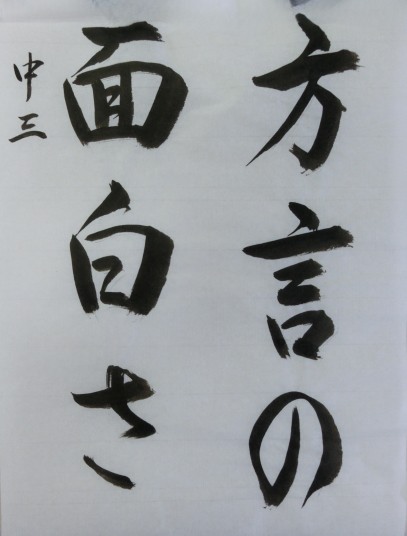 方言の
面白さ
中三